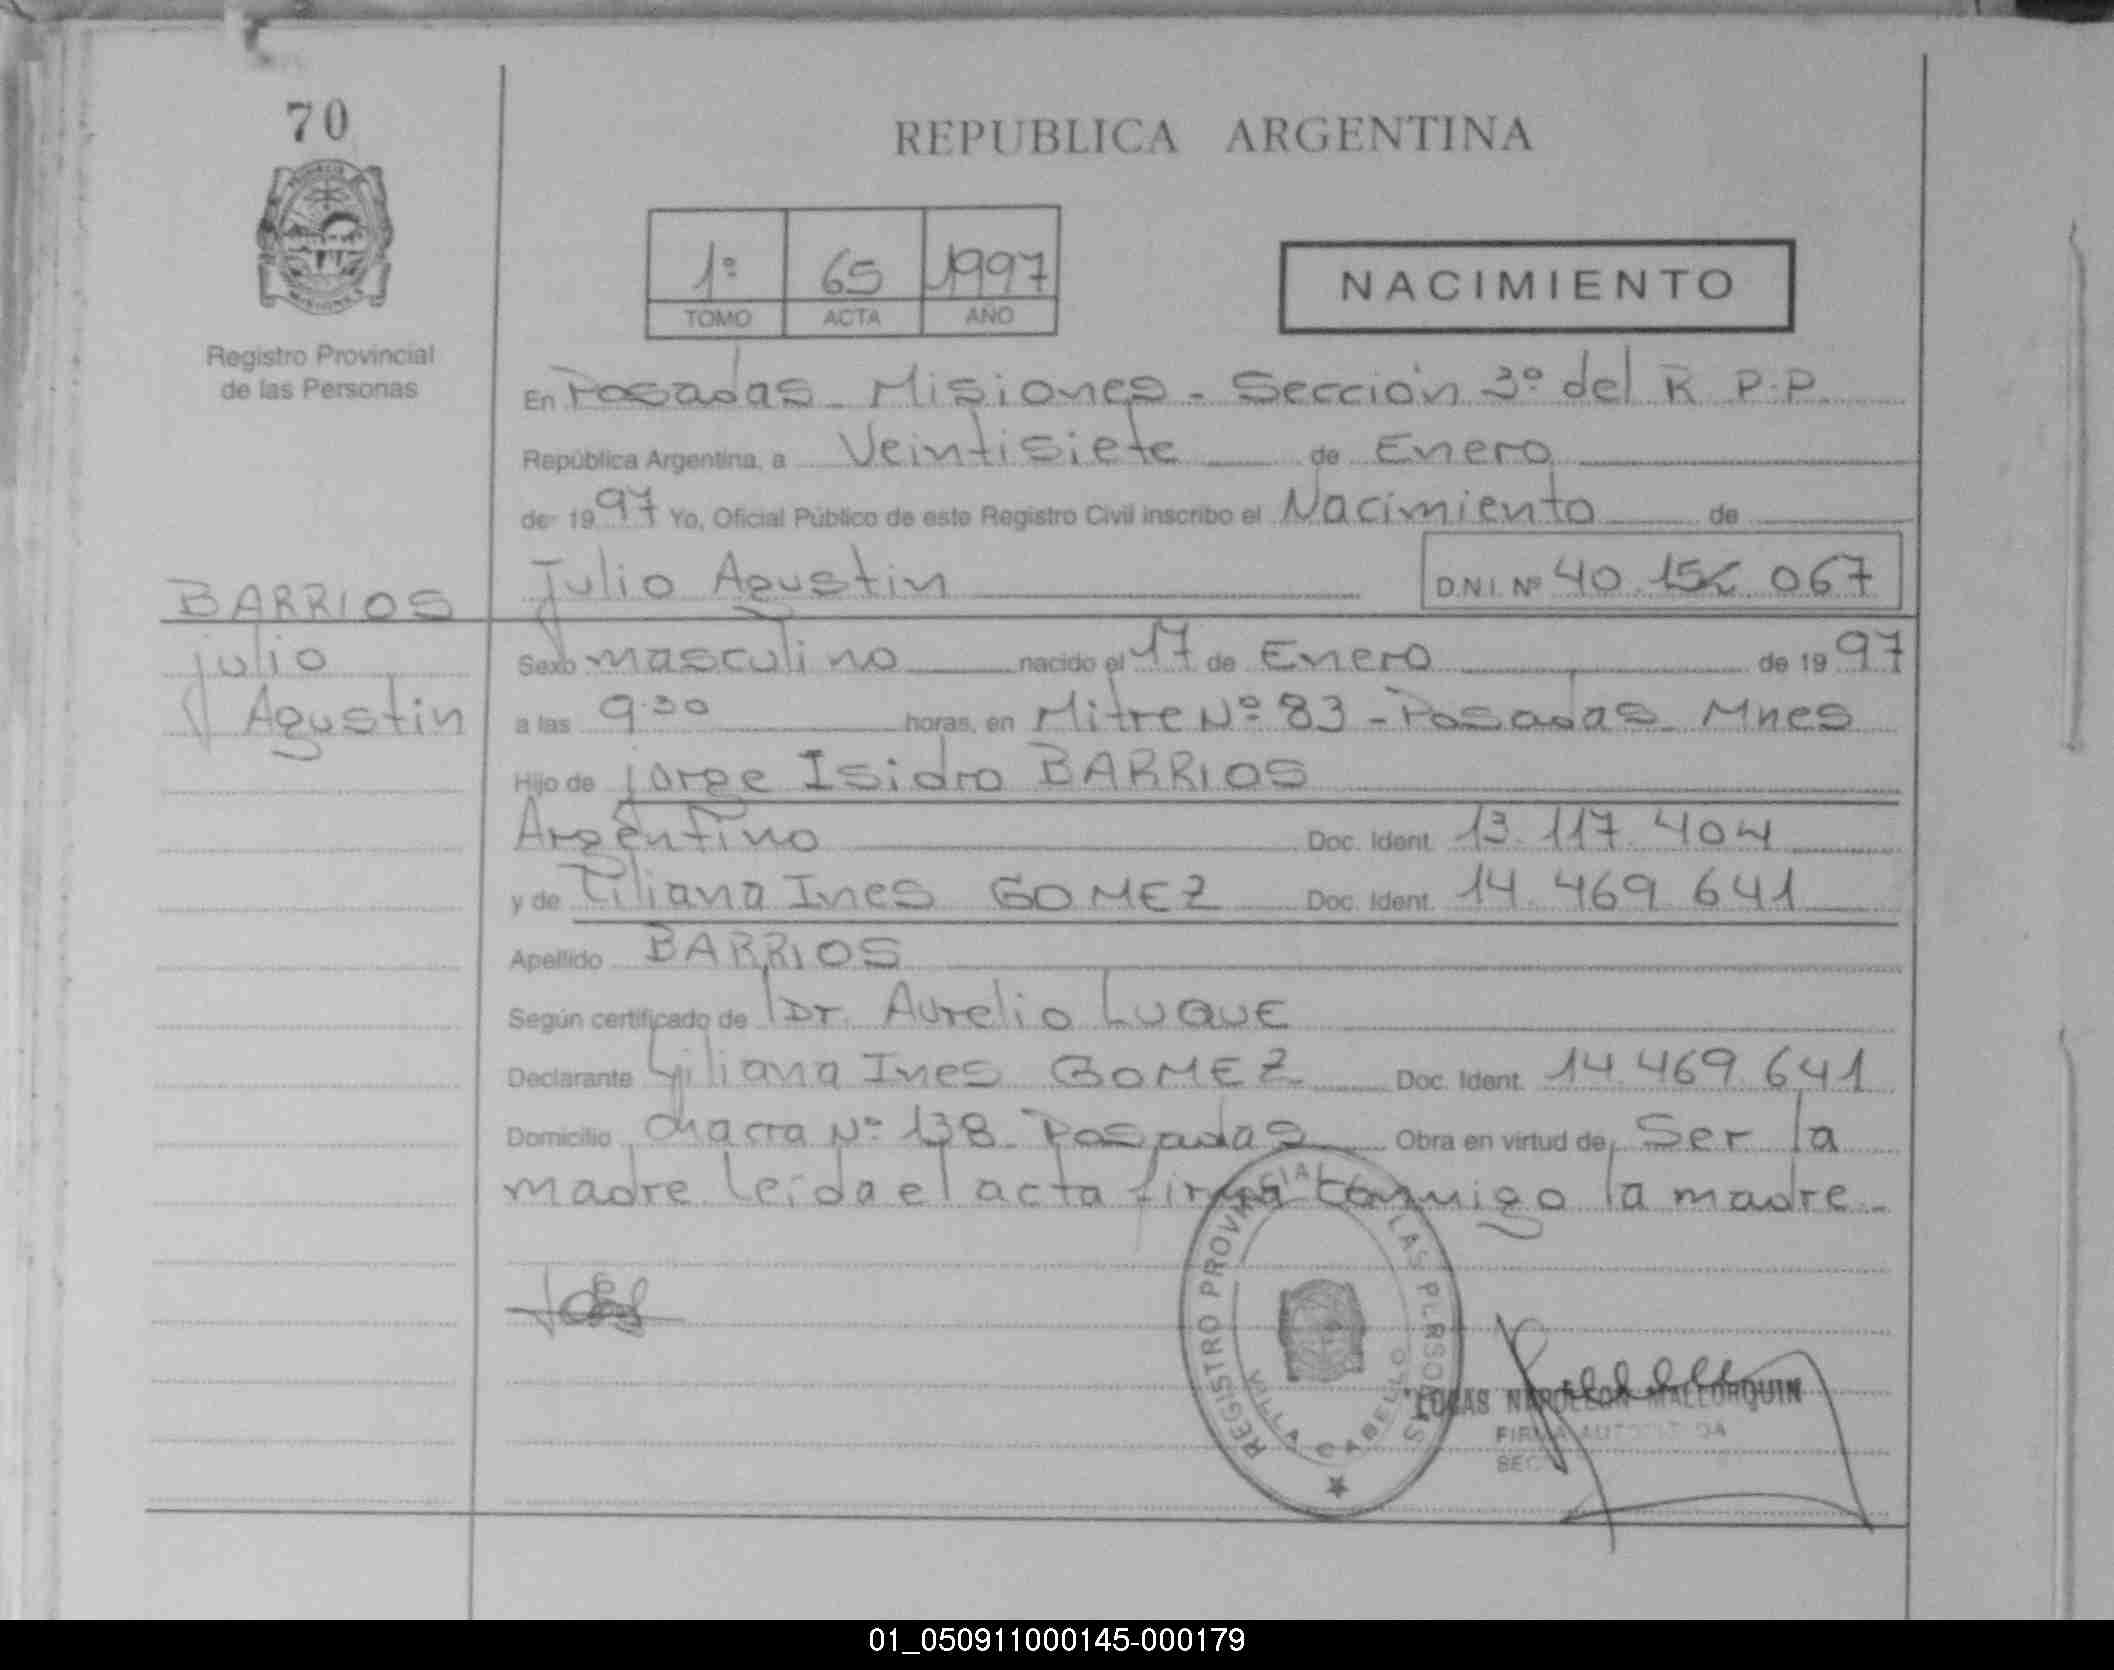 70
REPUBLICA ARGENTINA
1º 65 1997
TOMO ACTA AÑO
NACIMIENTO
Registro Provincial
de las Personas
En Posadas - Misiones - Sección 3º del R.P.P.
República Argentina, a Veintisiete de Enero
de 1997 Yo, Oficial Público de este Registro Civil inscribo el Nacimiento de
Julio Agustin D.N.I. Nº 40. 067
BARRIOS
Julio
Agustin
Sexo masculino nacido el 17 de Enero de 1997
a las 9.30 horas, en Mitre Nº 83 - Posadas Mnes
Hijo de Jorge Isidro BARRIOS
Argentino Doc. Ident. 13.117.404
y de Liliana Ines GOMEZ Doc. Ident. 14.469.641
Apellido BARRIOS
Según certificado de Dr. Aurelio LUQUE
Declarante Liliana Ines GOMEZ Doc. Ident. 14.469.641
Domicilio Chacra Nº 138 Posadas Obra en virtud de Ser la
madre leida el acta firma conmigo la madre.
REGISTRO PROVINCIAL DE LAS PERSONAS
VILLA CABELLO
LUCAS NAPOLEON MALLORQUIN
FIRMA AUTORIZADA
01_050911000145-000179